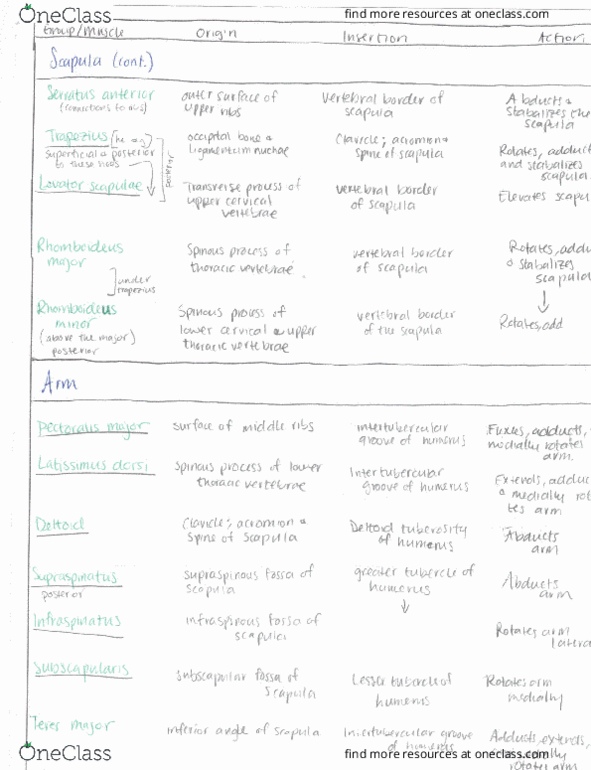 OneClass
find more resources at oneclass.com
Group/Muscle Origin Insertion Action
Scapula (cont.)
Serratus anterior outer surface of Vertebral border of Abducts &
(connections to ribs) upper ribs scapula stabalizes the
scapula
Trapezius occipital bone & Clavicle; acromion &
superficial & posterior ligamentum nuchae spine of scapula Rotates, adduct
to these and stabalizes
posterior scapula
Levator scapulae Transverse process of vertebral border Elevates scapu
upper cervical of scapula
vertebrae
Rhomboideus Spinous process of vertebral border Rotates, addu
major thoracic vertebrae of scapula & stabalizes
under scapula
trapezius
Rhomboideus Spinous process of vertebral border
minor lower cervical & upper of the scapula Rotates, add
(above the major) thoracic vertebrae
posterior
Arm
Pectoralis major surface of middle ribs intertubercular Fluxes, adducts,
groove of humerus medially rotates
arm
Latissimus dorsi Spinous process of lower Intertubercular
thoracic vertebrae groove of humerus Extends, adduc
& medially rot
tes arm
Deltoid Clavicle; acromion & Deltoid tuberosity Abducts
Spine of Scapula of humerus arm
Supraspinatus supraspinous fossa of greater tubercle of Abducts
posterior Scapula humerus arm
Infraspinatus infraspinous fossa of
scapula Rotates arm
latera
Subscapularis subscapular fossa of Lesser tubercle of Rotates arm
Scapula humerus medially
Teres major inferior angle of Scapula Intertubercular groove Adducts, extends,
of humerus
rotates arm
OneClass
find more resources at oneclass.com